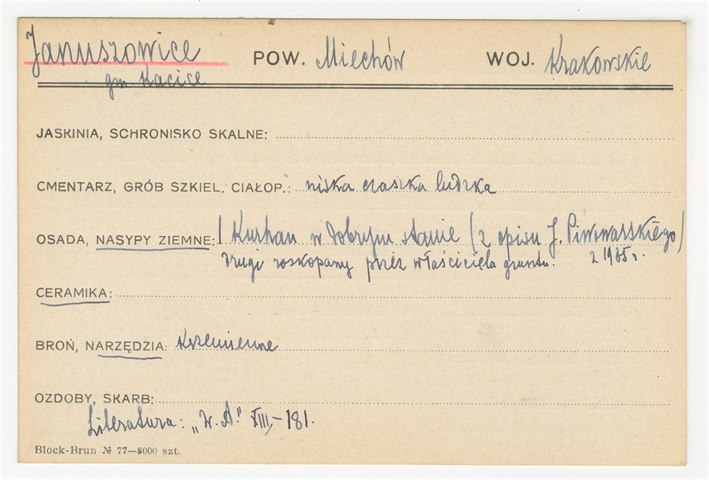 Januszowice POW. Miechów WOJ. Krakowskie
gm. Kacice
JASKINIA, SCHRONISKO SKALNE:
CMENTARZ, GRÓB SZKIEL. CIAŁOP.: niska czaszka ludzka
OSADA, NASYPY ZIEMNE: 1 Kurhan w dobrym stanie (z opisu J. Piwowarskiego)
drugi roskopany przez właściciela gruntu. z 1965 r.
CERAMIKA:
BROŃ, NARZĘDZIA: krzemienne
OZDOBY, SKARB:
Literatura: „W. A." XIII,-181.
Block-Brun № 77—8000 szt.